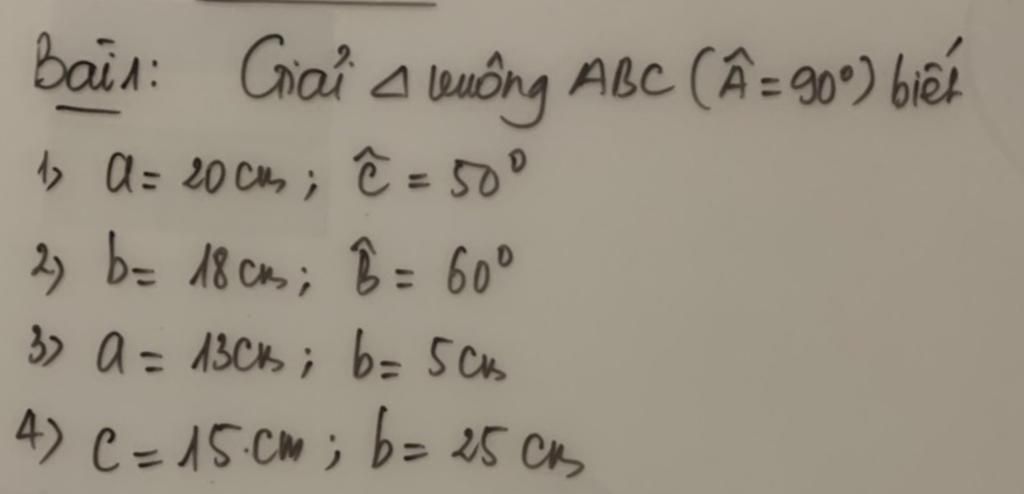 Bài 1: Giải Δ vuông ABC (Â = 90°) biết
1) a = 20 cm ; Ĉ = 50°
2) b = 18 cm ; B̂ = 60°
3) a = 13cm ; b = 5cm
4) c = 15.cm ; b = 25 cm